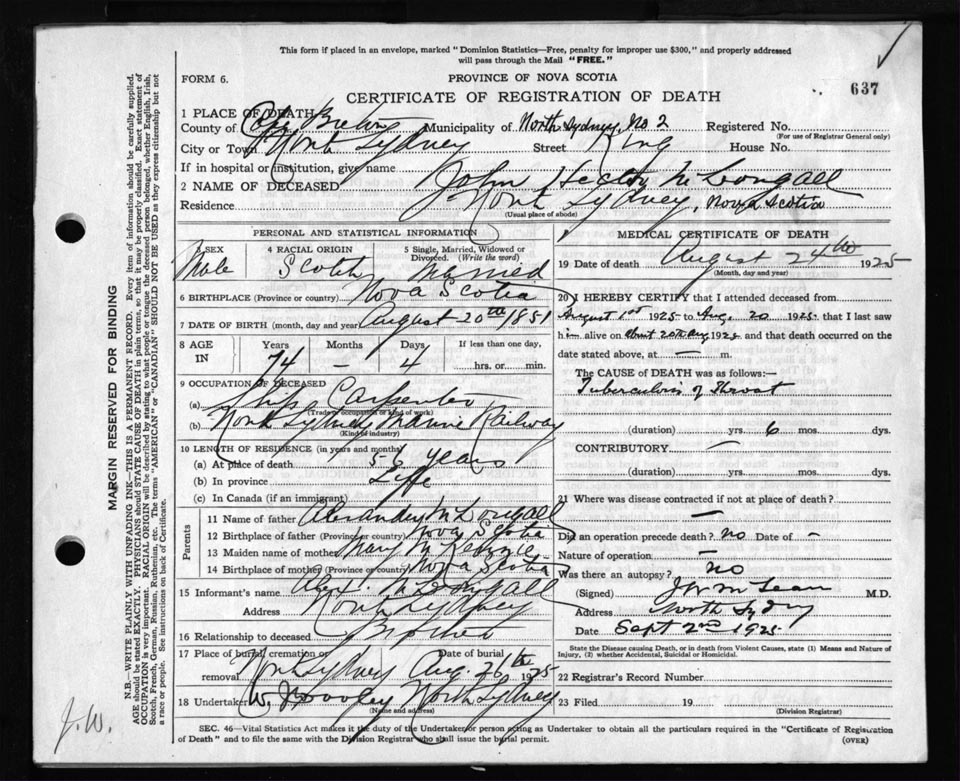 This form if placed in an envelope, marked "Dominion Statistics—Free, penalty for improper use $300," and properly addressed
will pass through the Mail "FREE."
FORM 6.
PROVINCE OF NOVA SCOTIA
637
CERTIFICATE OF REGISTRATION OF DEATH
1 PLACE OF DEATH
County of Cape Breton Municipality of North Sydney, No 2 Registered No.
(For use of Registrar General only)
City or Town North Sydney Street King House No.
If in hospital or institution, give name
2 NAME OF DECEASED John Hector McDougall
Residence North Sydney, Nova Scotia
(Usual place of abode)
PERSONAL AND STATISTICAL INFORMATION
3 SEX 4 RACIAL ORIGIN 5 Single, Married, Widowed or
Divorced. (Write the word)
Male Scotch Married
6 BIRTHPLACE (Province or country) Nova Scotia
7 DATE OF BIRTH (month, day and year) August 20th 1851
8 AGE IN Years Months Days If less than one day,
74 — 4 hrs. or min.
9 OCCUPATION OF DECEASED
(a) Ships Carpenter
(Trade, occupation or kind of work)
(b) North Sydney Marine Railway
(Kind of industry)
10 LENGTH OF RESIDENCE (in years and months)
(a) At place of death years
(b) In province Life
(c) In Canada (if an immigrant)
Parents
11 Name of father Alexander McDougall
12 Birthplace of father (Province or country) Nova Scotia
13 Maiden name of mother Mary McKenzie
14 Birthplace of mother (Province or country) Nova Scotia
15 Informant's name Alex. McDougall
Address North Sydney
16 Relationship to deceased Brother
17 Place of burial, cremation or Date of burial
removal North Sydney Aug. 26th 1925
18 Undertaker W. North Sydney
(Name and address)
MEDICAL CERTIFICATE OF DEATH
19 Date of death August 24th 1925
(Month, day and year)
20 I HEREBY CERTIFY that I attended deceased from
August 1st 1925 to Aug. 20 1925. that I last saw
him alive on about 20th Aug 1925 and that death occurred on the
date stated above, at — m.
The CAUSE of DEATH was as follows:—
Tuberculosis of Throat
(duration) yrs. 6 mos. dys.
CONTRIBUTORY. —
(duration) yrs. mos. dys.
21 Where was disease contracted if not at place of death?
—
Did an operation precede death? no Date of —
Nature of operation —
Was there an autopsy? no
(Signed) M.D.
Address North Sydney
Date Sept 2nd 1925.
State the Disease causing Death, or in death from Violent Causes, state (1) Means and Nature of
Injury, (2) whether Accidental, Suicidal or Homicidal.
22 Registrar's Record Number
23 Filed 19
(Division Registrar)
SEC. 46—Vital Statistics Act makes it the duty of the Undertaker or person acting as Undertaker to obtain all the particulars required in the "Certificate of Registration
of Death" and to file the same with the Division Registrar who shall issue the burial permit.
(OVER)
MARGIN RESERVED FOR BINDING
N.B.—WRITE PLAINLY WITH UNFADING INK—THIS IS A PERMANENT RECORD. Every item of information should be carefully supplied.
AGE should be stated EXACTLY. PHYSICIANS should STATE CAUSE OF DEATH in plain terms, so that it may be properly classified. Exact statement of
OCCUPATION is very important. RACIAL ORIGIN will be described by stating to what people or tongue the deceased person belonged, whether English, Irish,
Scotch, French, German, Russian, Ruthenian, etc. The terms "AMERICAN" or "CANADIAN" SHOULD NOT BE USED as they express citizenship but not
a race or people. See instructions on back of Certificate.
J.W.